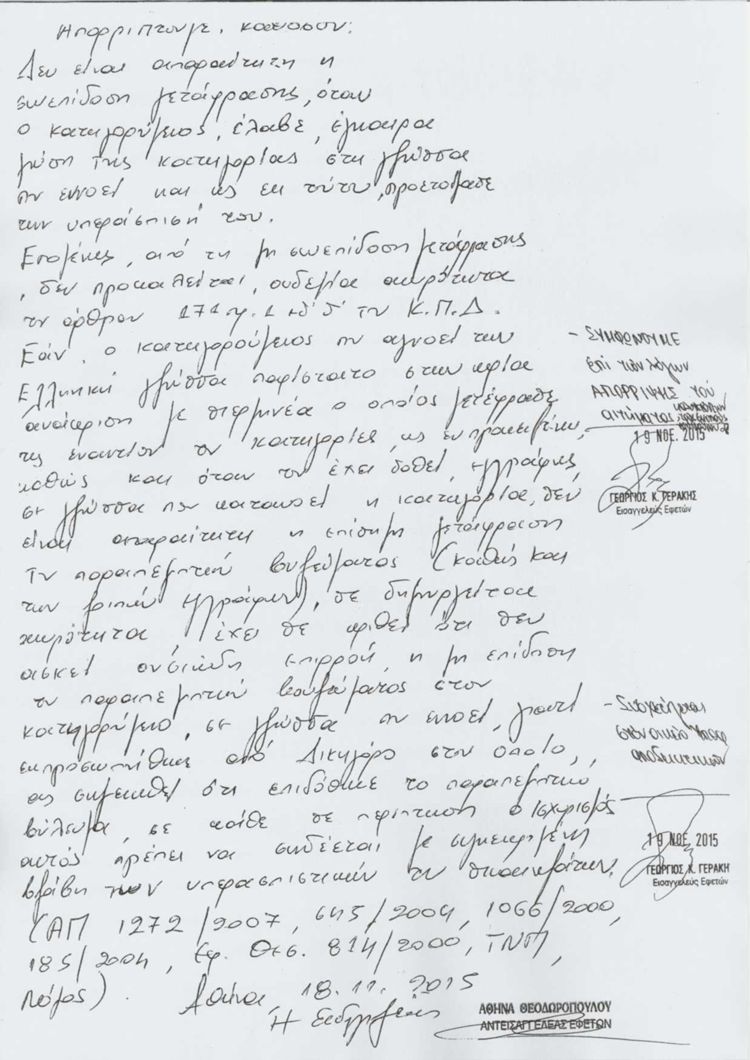 Απορρίπτουμε, καθόσον:
Δεν είναι απαραίτητη η
συνεπίδοση μετάφρασης, όταν
ο κατηγορούμενος, έλαβε, έγκαιρα
γνώση της κατηγορίας στη γλώσσα
που εννοεί και ως εκ τούτου, προετοίμασε
την υπεράσπισή του.
Επομένως, από τη μη συνεπίδοση μετάφρασης
, δεν προκαλείται, ουδεμία ακυρότητα
του άρθρου 171 παρ. 1 εδ. δ' του Κ.Π.Δ.
Εάν, ο κατηγορούμενος που αγνοεί την
Ελληνική γλώσσα παρίστατο στην κύρια
ανάκριση με διερμηνέα ο οποίος μετέφρασε
τις εναντίον του κατηγορίες, ως εν προκειμένω,
καθώς και όταν του έχει δοθεί, εγγράφως
σε γλώσσα που κατανοεί η κατηγορία, δεν
είναι απαραίτητη η επίσημη μετάφραση
του παραπεμπτικού βουλεύματος (καθώς και
των λοιπών εγγράφων), δε δημιουργείται
ακυρότητα έχει δε κριθεί ότι δεν
ασκεί ουσιώδη επιρροή, η μη επίδοση
του παραπεμπτικού βουλεύματος στον
κατηγορούμενο, σε γλώσσα που εννοεί, γιατί
εκπροσωπήθηκε από Δικηγόρο στον οποίο,
ας σημειωθεί ότι επιδόθηκε το παραπεμπτικό
βούλευμα, σε κάθε δε περίπτωση ο ισχυρισμός
αυτός πρέπει να συνδέεται με συγκεκριμένη
βλάβη των υπερασπιστικών του δικαιωμάτων.
(ΑΠ 1272/2007, 645/2004, 1066/2000,
185/2004, Εφ. Θεσ. 814/2000, ΤΝΠ,
Νόμος). Αθήνα, 18.11.2015
Η Εισαγγελέας
ΑΘΗΝΑ ΘΕΟΔΩΡΟΠΟΥΛΟΥ
ΑΝΤΕΙΣΑΓΓΕΛΕΑΣ ΕΦΕΤΩΝ
- ΣΥΜΦΩΝΟΥΜΕ
επί των λόγων
ΑΠΟΡΡΙΨΗΣ ΤΟΥ
αιτήματος
19 ΝΟΕ. 2015
ΓΕΩΡΓΙΟΣ Κ. ΓΕΡΑΚΗΣ
Εισαγγελεύς Εφετών
αποδεικτικών
19 ΝΟΕ. 2015
ΓΕΩΡΓΙΟΣ Κ. ΓΕΡΑΚΗ
Εισαγγελεύς Εφετών